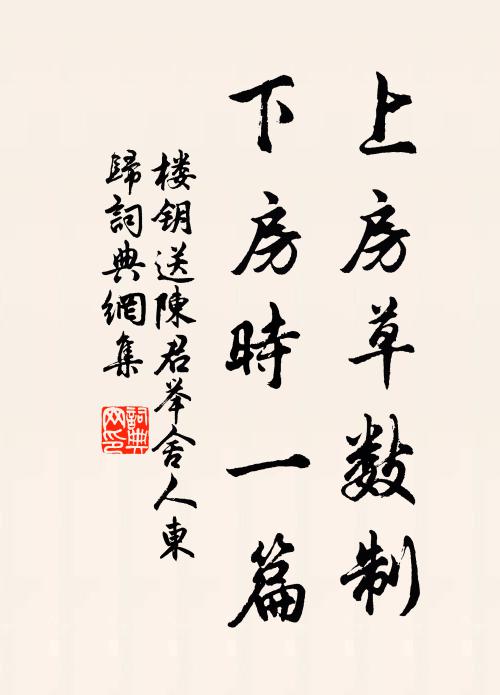 上房草数制
下房時一篇
楼钥送陳君举舍人東
歸詞典網集
詞典网印